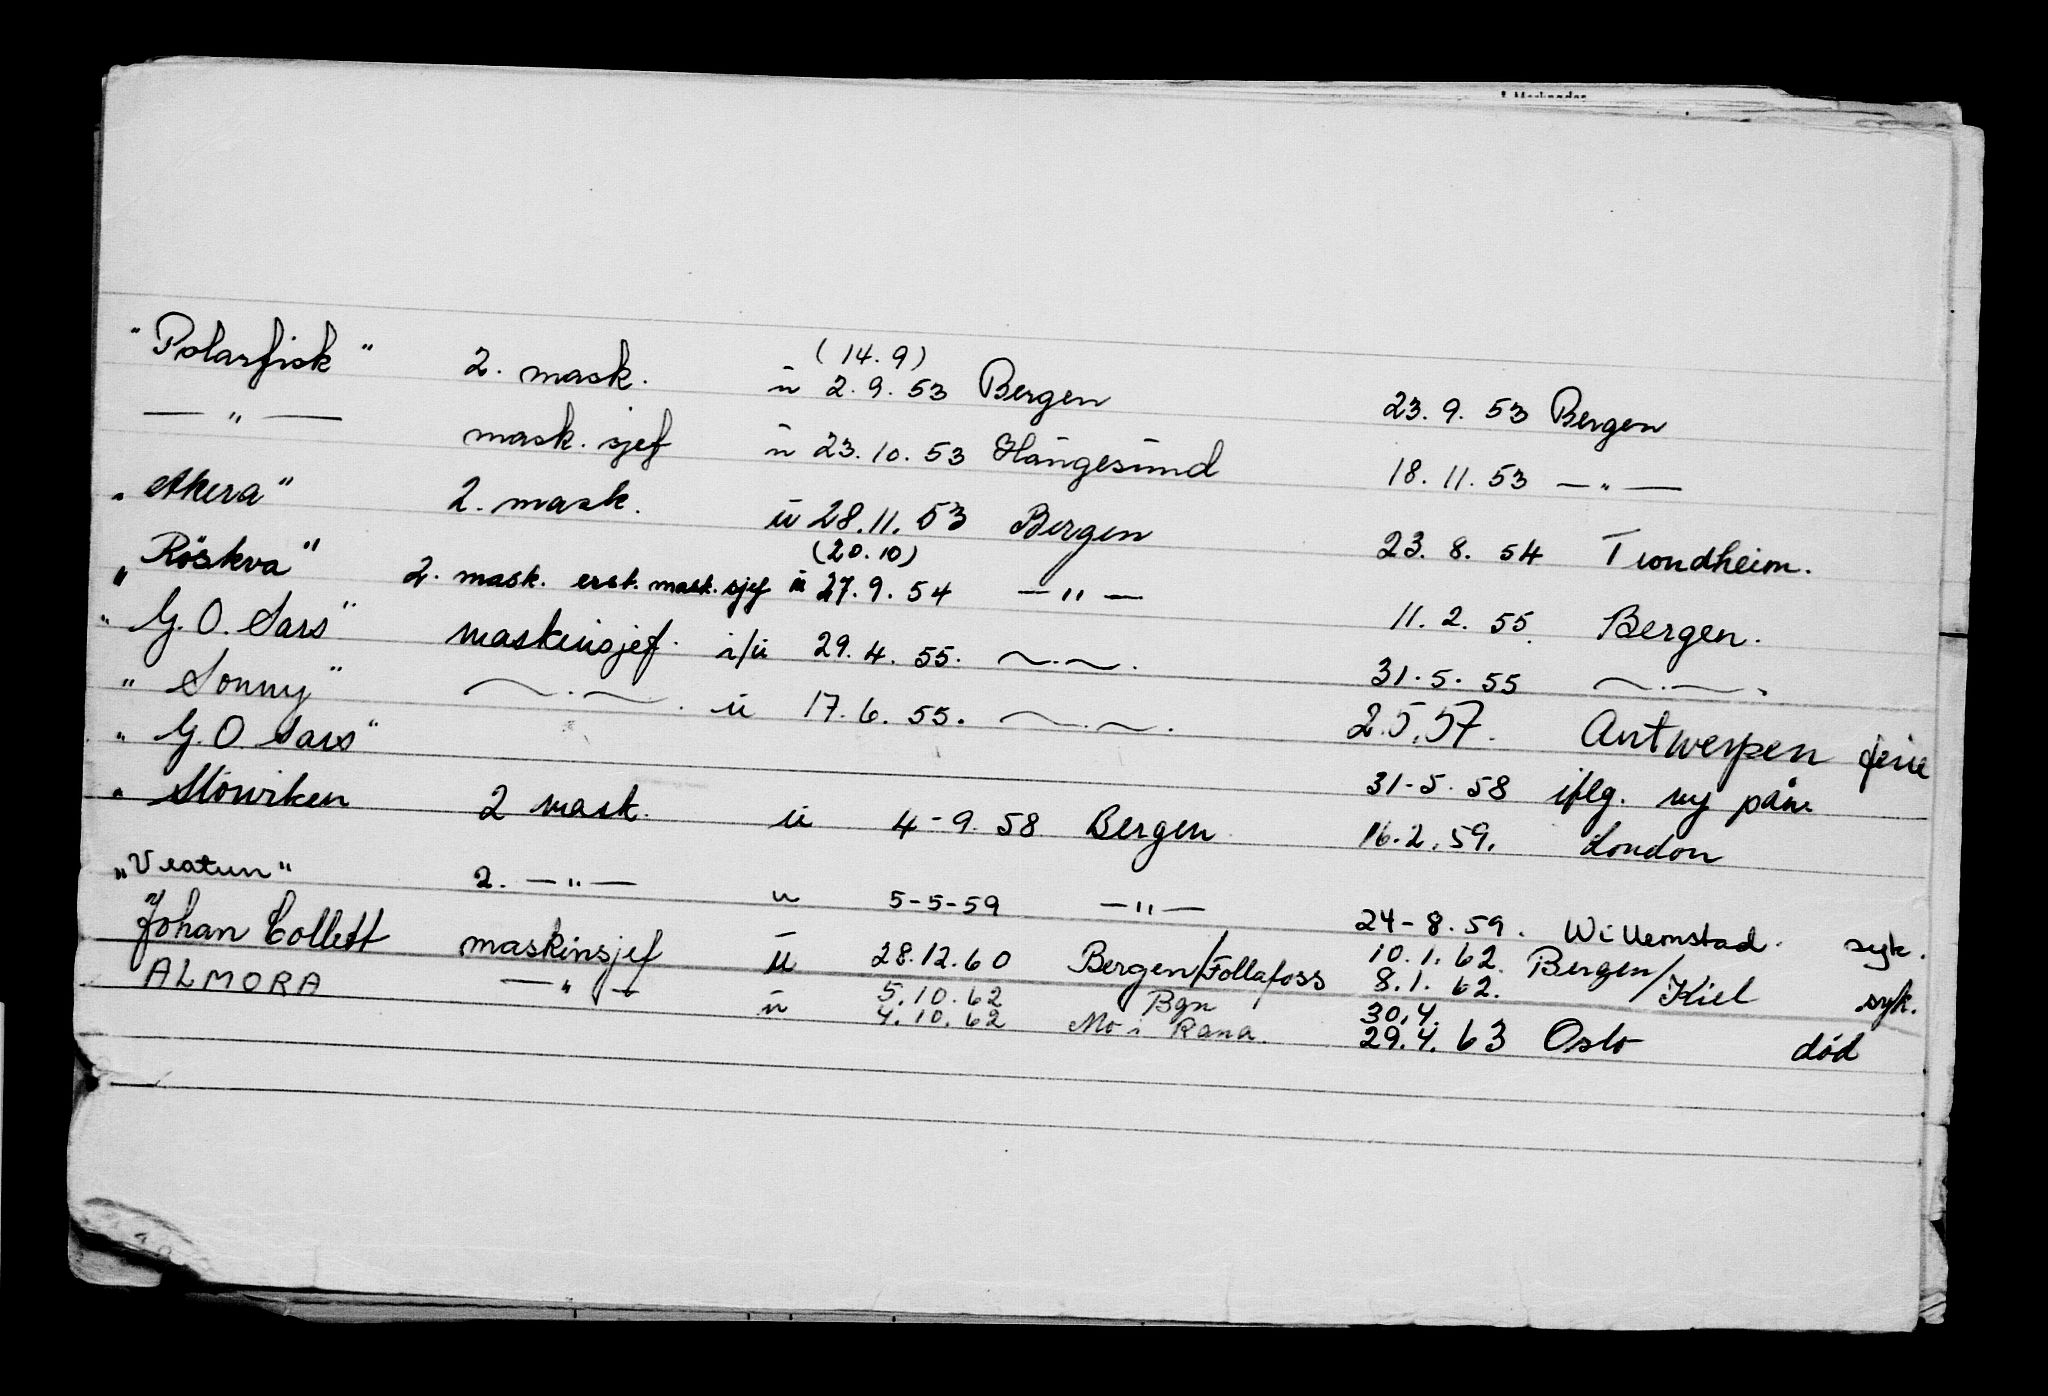 "Polarfisk" 2. mask. u (14.9) 2.9.53 Bergen 23.9.53 Bergen
— " — mask. sjef u 23.10.53 Haugesund 18.11.53 — " —
"Akera" 2. mask. u 28.11.53 Bergen 23.8.54 Trondheim.
"Röskva" 2. mask. erst. mask. sjef u (20.10) 27.9.54 — " — 11.2.55. Bergen.
"G.O. Sars" maskinsjef. i/u 29.4.55. ~.~. 31.5.55 ~.~.
"Sonny" ~.~. u 17.6.55. ~.~. 2.5.57. Antwerpen ferie
"G.O. Sars" 31-5.58 iflg. ny påm
"Storviken 2 mask. u 4-9.58 Bergen 16.2.59. London
"Vestun" 2. — " — u 5-5-59 — " — 24-8.59. Willemstad. syk.
Johan Collett maskinsjef u 28.12.60 Bergen/Follafoss 10.1.62. 8.1.62. Bergen/Kiel syk.
ALMORA — " — u 5.10.62 4.10.62 Bgn Mo i Rana. 30.4. 29.4.63 Oslo død